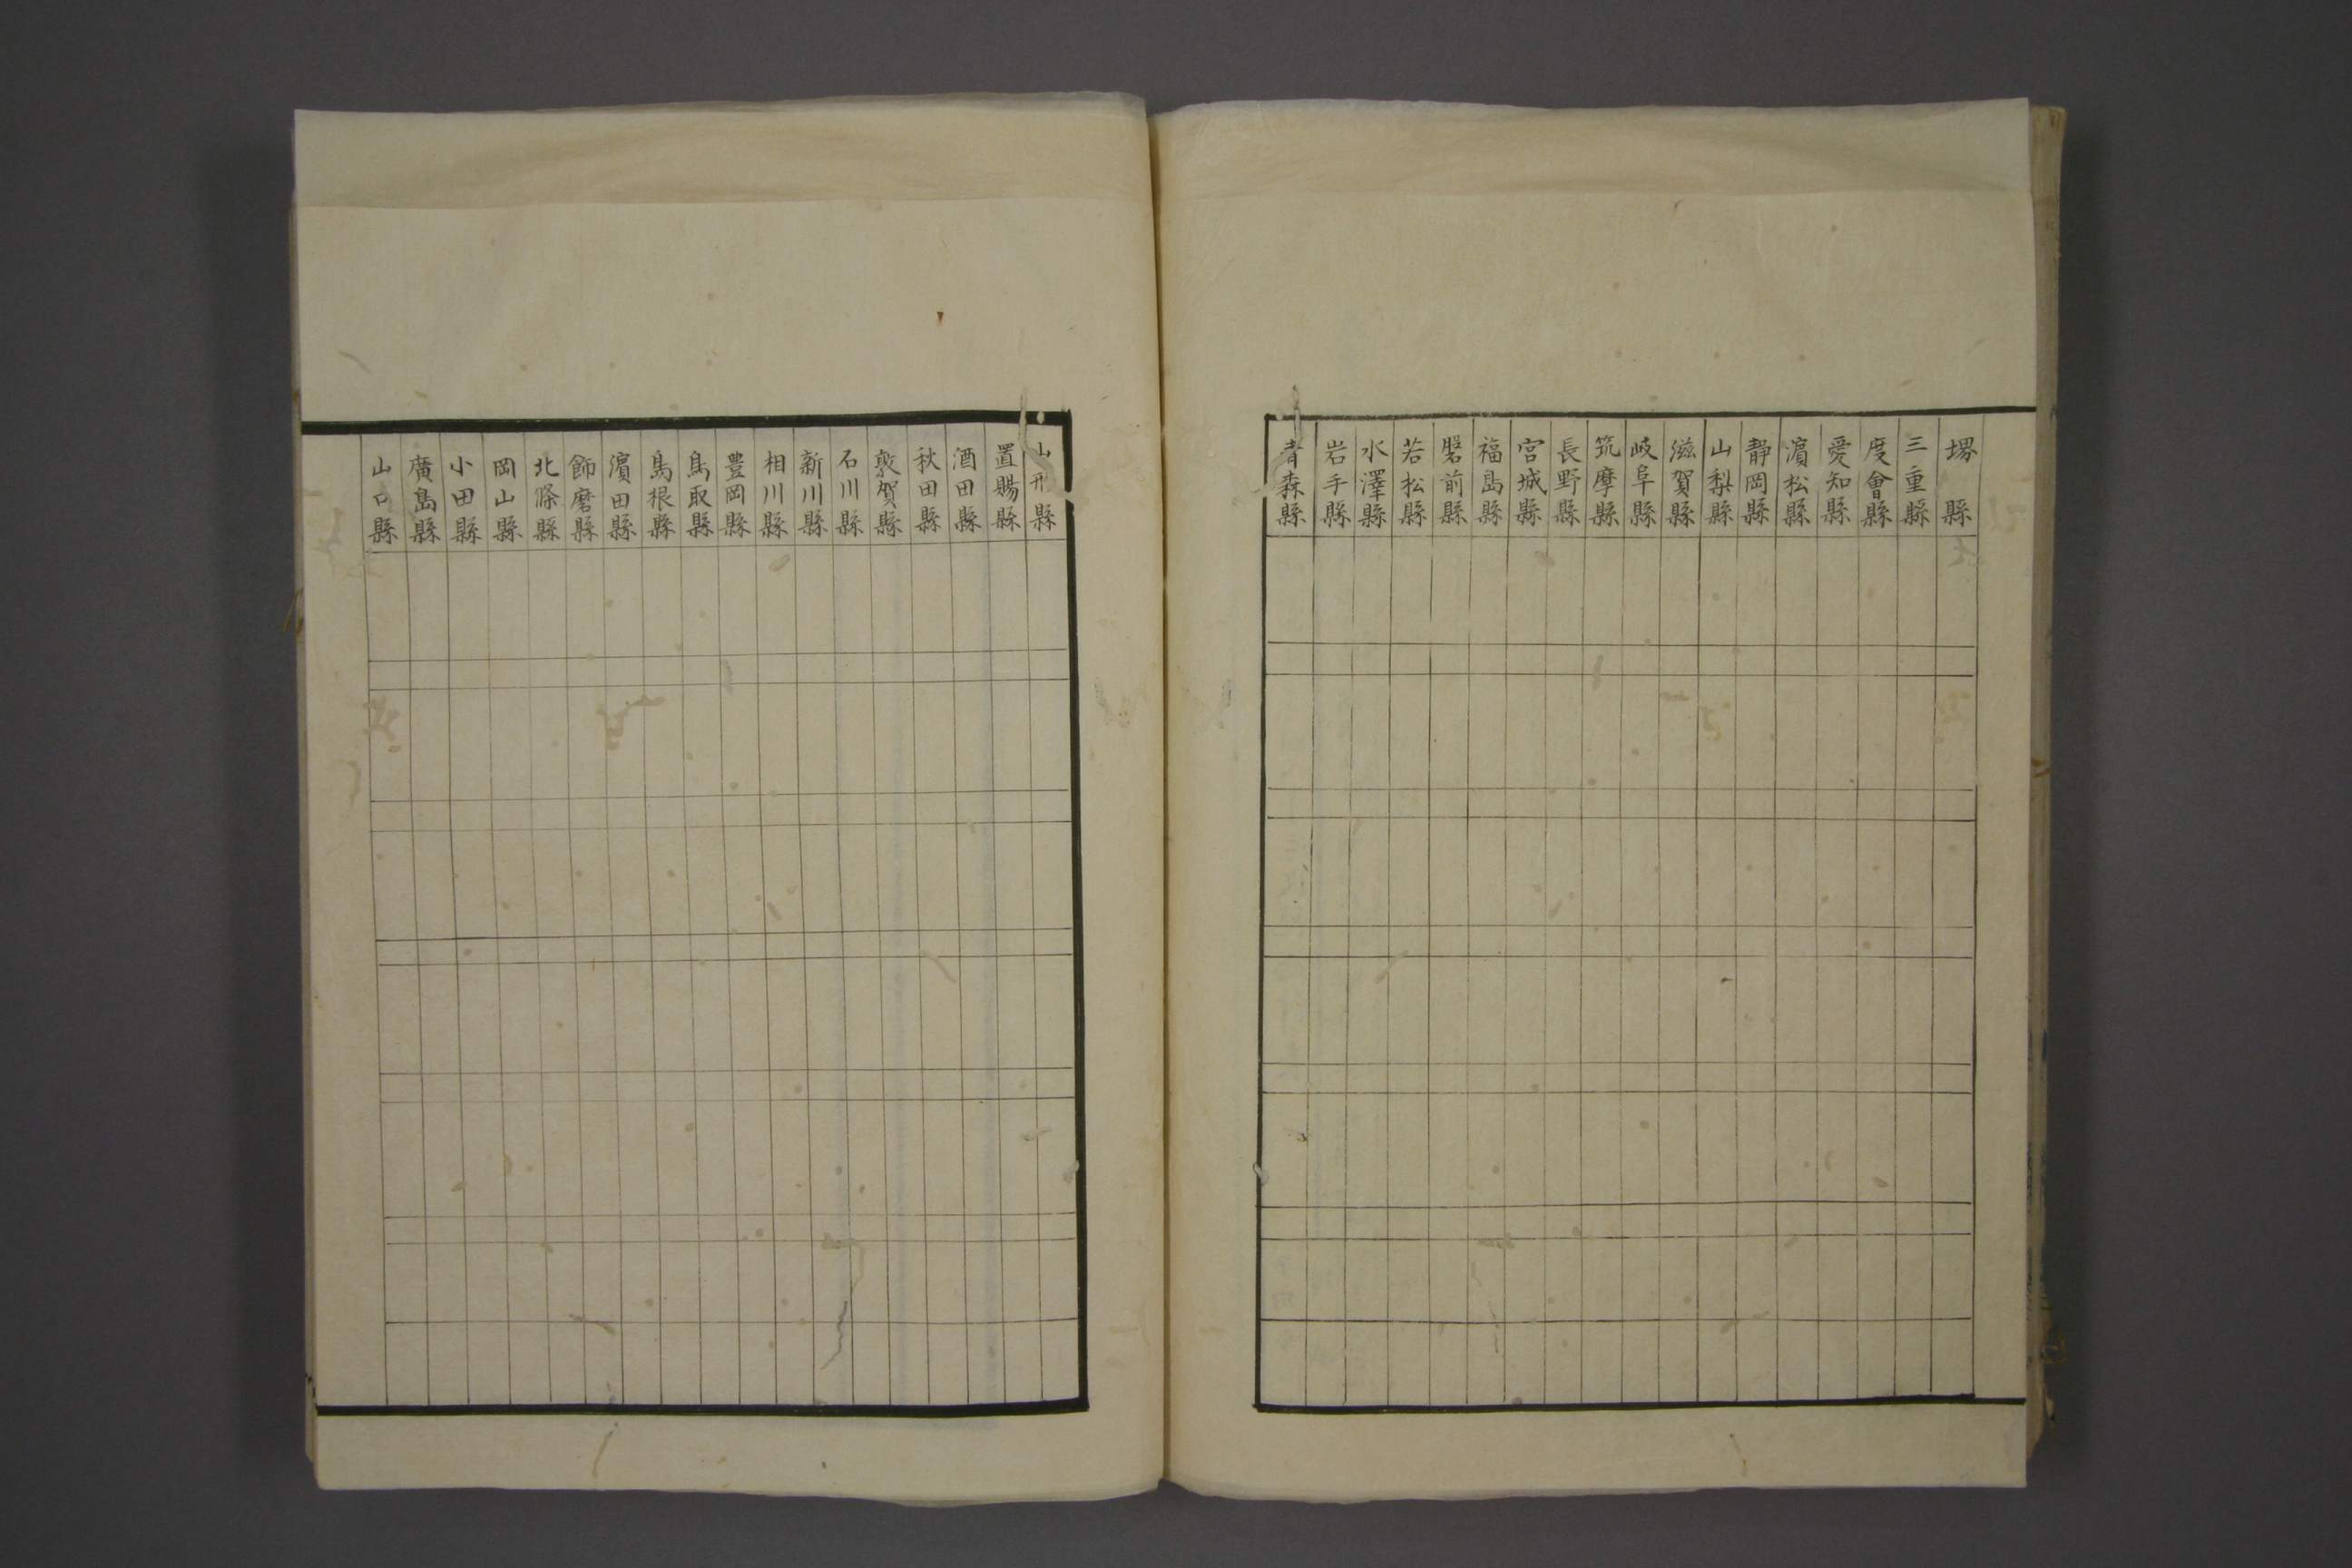 堺縣
三重縣
度會縣
愛知縣
濵松縣
静岡縣
山梨縣
滋賀縣
岐阜縣
筑摩縣
長野縣
宮城縣
福島縣
磐前縣
若松縣
水澤縣
岩手縣
青森縣
山形縣
置賜縣
酒田縣
秋田縣
敦賀縣
石川縣
新川縣
相川縣
豊岡縣
鳥取縣
島根縣
濵田縣
飾磨縣
北條縣
岡山縣
小田縣
廣島縣
山口縣